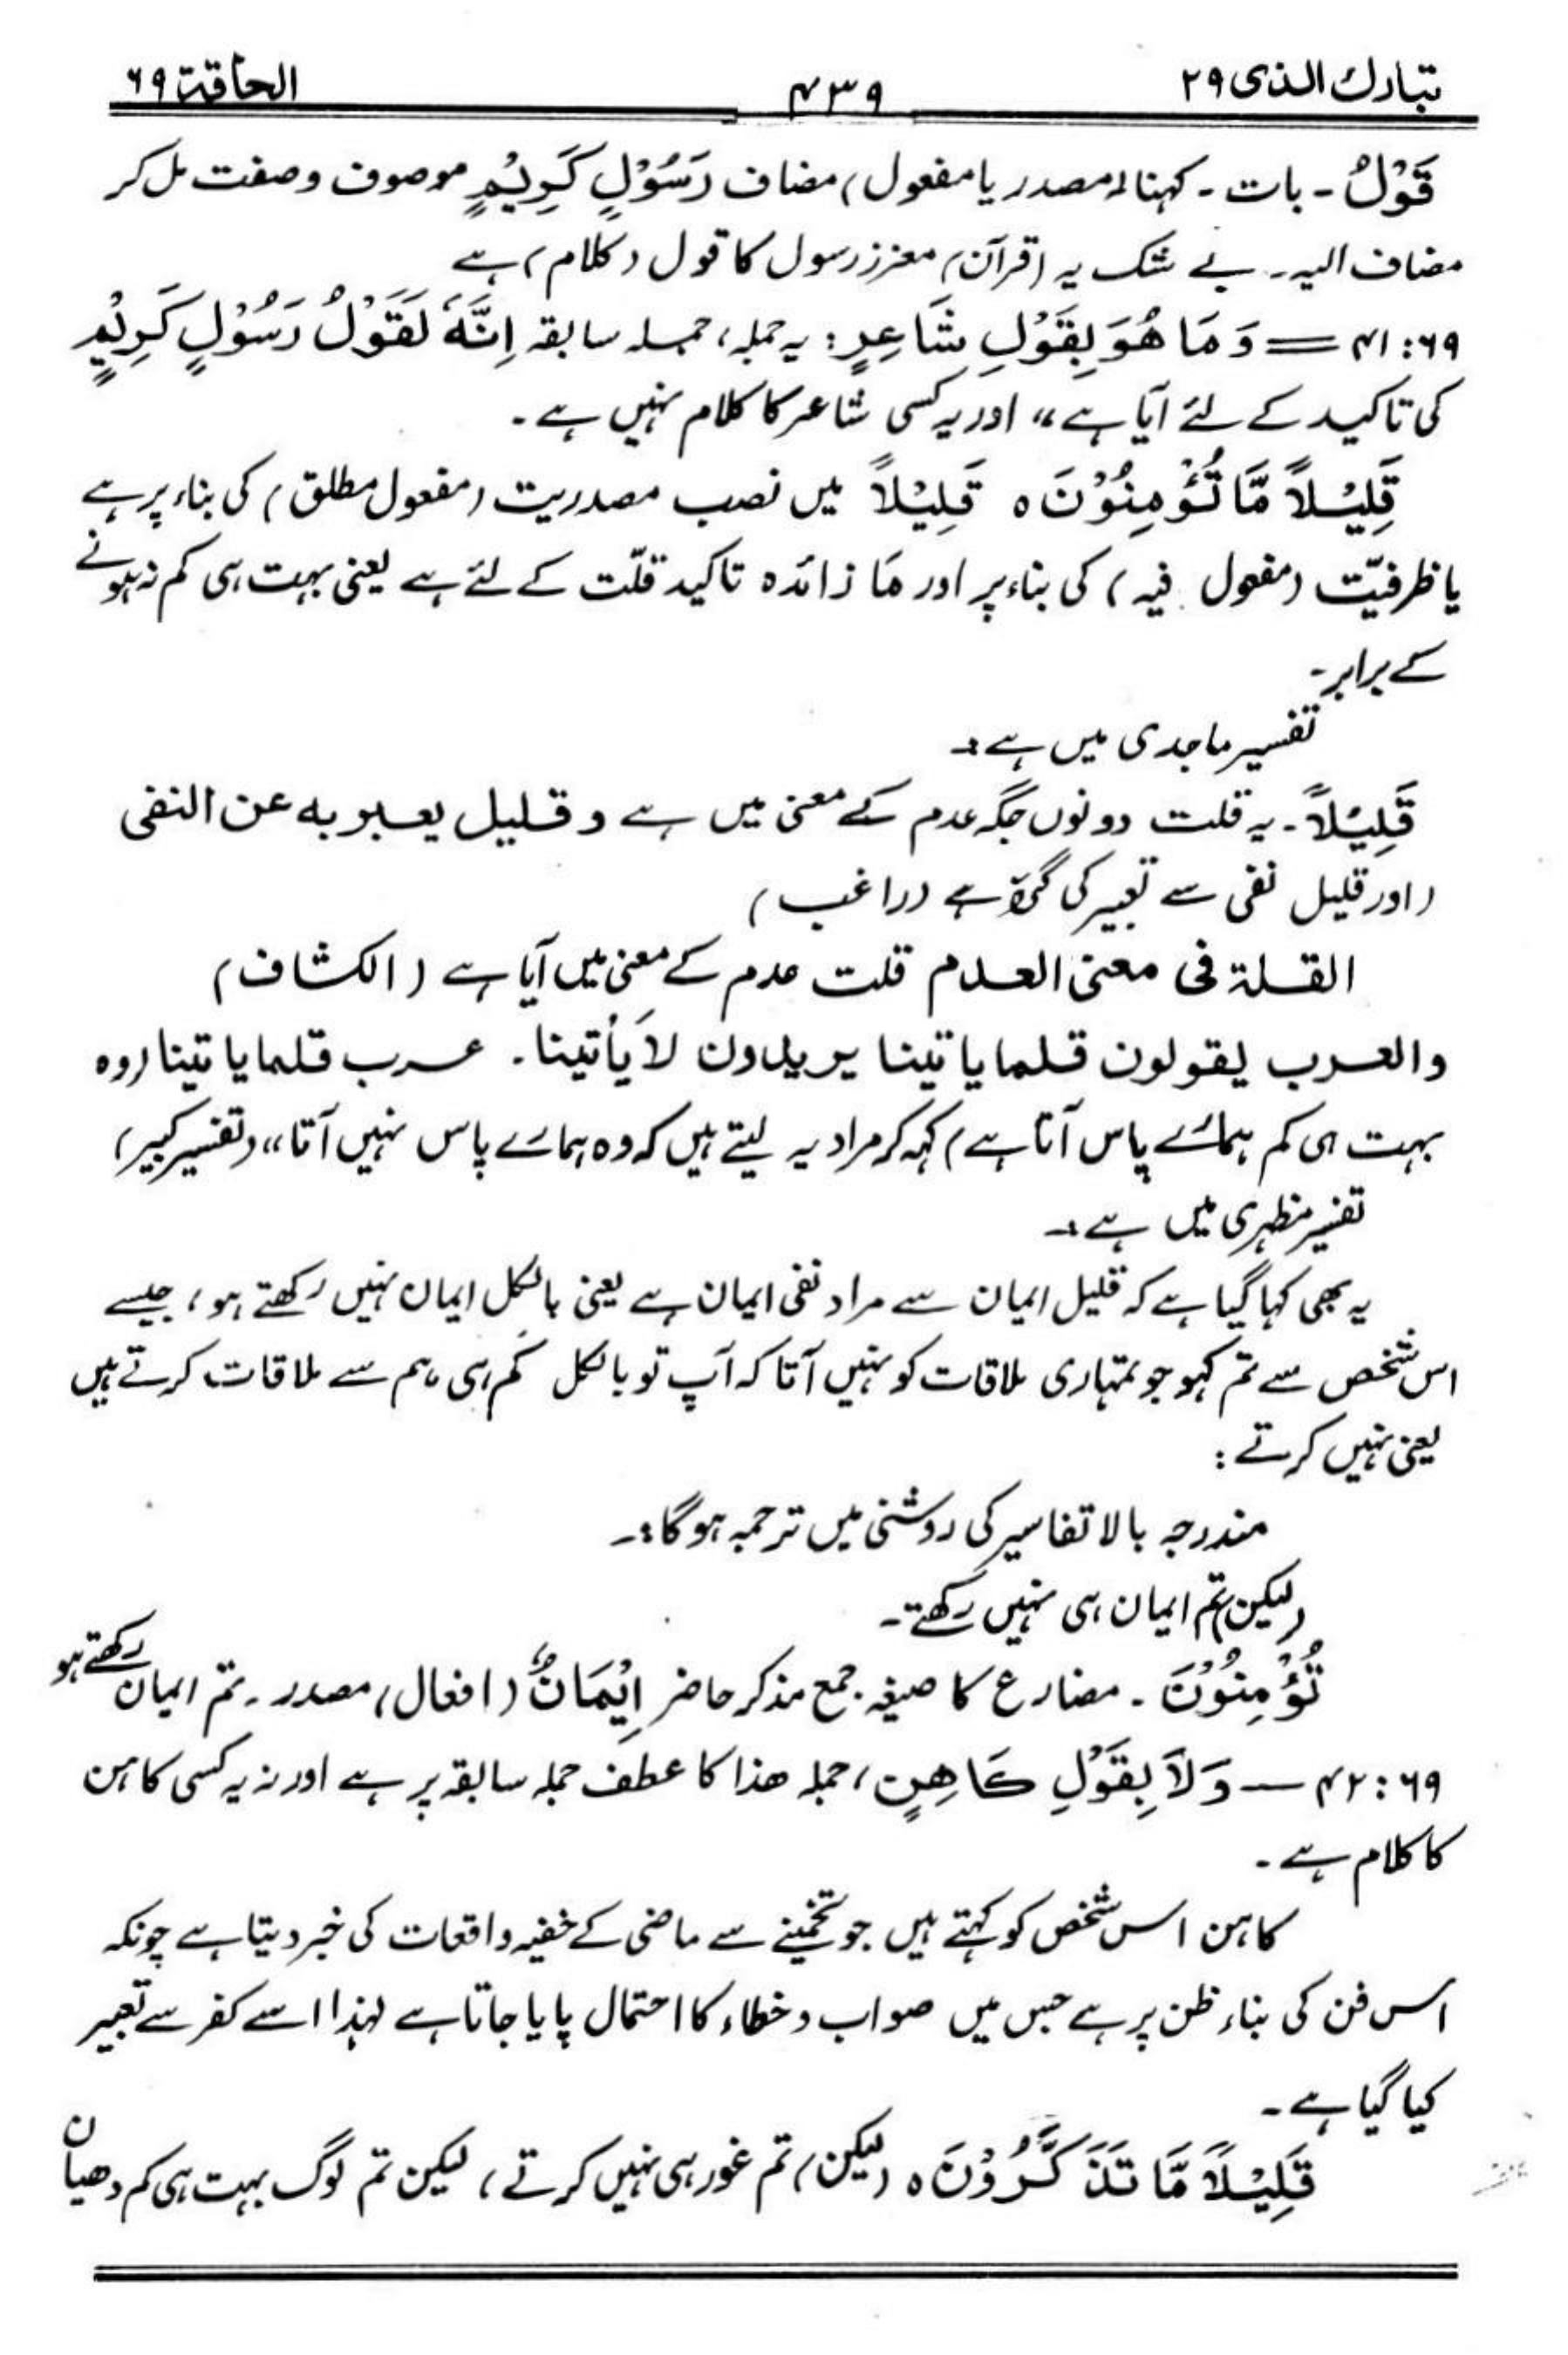 تبارك الذی ۲۹
۴۳۹
الحاقة ۶۹
قَوْلُ ۔ بات ۔ کہنا (مصدر یا مفعول) مضاف رَسُوْلٍ کَرِیْمٍ موصوف و صفت مل کر
مضاف الیہ ۔ بے شک یہ (قرآن) معزز رسول کا قول (کلام) ہے
۶۹:۴۱ = وَ مَا هُوَ بِقَوْلِ شَاعِرٍ: یہ جملہ، جملہ سابقہ اِنَّهٗ لَقَوْلُ رَسُوْلٍ کَرِیْمٍ
کی تاکید کے لئے آیا ہے،، اور یہ کسی شاعر کا کلام نہیں ہے ۔
قَلِیْلاً مَّا تُؤْمِنُوْنَ ہ قَلِیْلاً میں نصب مصدریت (مفعول مطلق) کی بناء پر ہے
یا ظرفیّت (مفعول فیہ) کی بناء پر اور مَا زائدہ تاکید قلّت کے لئے ہے یعنی بہت ہی کم نہ ہونے
کے برابر ۔
تفسیر ماجدی میں ہے :۔
قَلِیْلاً ۔ یہ قلت دونوں جگہ عدم کے معنی میں ہے و قلیل یعبر به عن النفی
(اور قلیل نفی سے تعبیر کی گئی ہے (راغب)
القلة فی معنی العدم قلت عدم کے معنی میں آیا ہے (الکشاف)
والعرب یقولون قلما یاتینا یریدون لاَ یأتینا ۔ عرب قلما یاتینا (وہ
بہت ہی کم ہمارے پاس آتا ہے) کہہ کر مراد یہ لیتے ہیں کہ وہ ہمارے پاس نہیں آتا،، (تفسیر کبیر)
تفسیر مظہری میں ہے :۔
یہ بھی کہا گیا ہے کہ قلیل ایمان سے مراد نفی ایمان ہے یعنی بالکل ایمان نہیں رکھتے ہو، جیسے
اس شخص سے تم کہو جو تمہاری ملاقات کو نہیں آتا کہ آپ تو بالکل کم ہی ہم سے ملاقات کرتے ہیں
یعنی نہیں کرتے :
مندرجہ بالا تفاسیر کی روشنی میں ترجمہ ہوگا :۔
(لیکن) تم ایمان ہی نہیں رکھتے ۔
تُؤْمِنُوْنَ ۔ مضارع کا صیغہ جمع مذکر حاضر اِیْمَانٌ (افعال) مصدر ۔ تم ایمان رکھتے ہو
۶۹:۴۲ — وَلاَ بِقَوْلِ کَاهِنٍ، جملہ ھذا کا عطف جملہ سابقہ پر ہے اور نہ یہ کسی کاہن
کا کلام ہے ۔
کاہن اس شخص کو کہتے ہیں جو تخمینے سے ماضی کے خفیہ واقعات کی خبر دیتا ہے چونکہ
اس فن کی بناء ظن پر ہے جس میں صواب و خطاء کا احتمال پایا جاتا ہے لہٰذا اسے کفر سے تعبیر
کیا گیا ہے ۔
قَلِیْلاً مَّا تَذَکَّرُوْنَ ہ (لیکن) تم غور ہی نہیں کرتے، لیکن تم لوگ بہت ہی کم دھیان